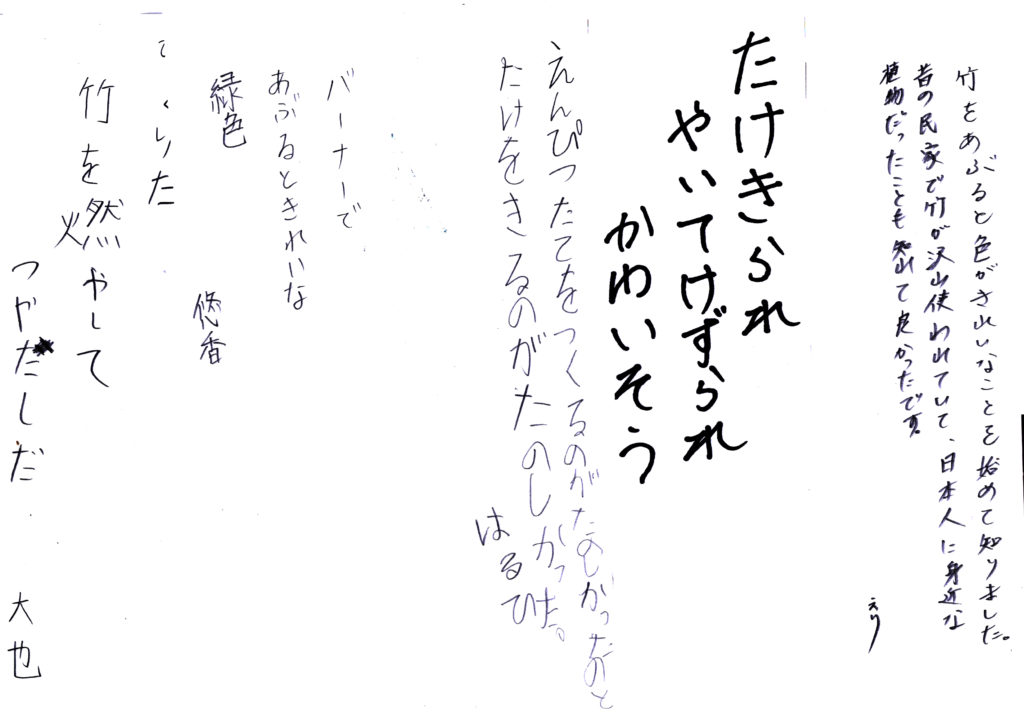 竹をあぶると色がきれいなことを始めて知りました。
昔の民家で竹が沢山使われていて、日本人に身近な
植物だったことも知れて良かったです。
えり
たけきられ
やいてけずられ
かわいそう
えんぴつたてをつくるのがたのしかったのと
たけをきるのがたのしかった。
はるひ
バーナーで
あぶるときれいな
緑色
悠香
てくりた
竹を燃やして
火
つやだしだ
大也